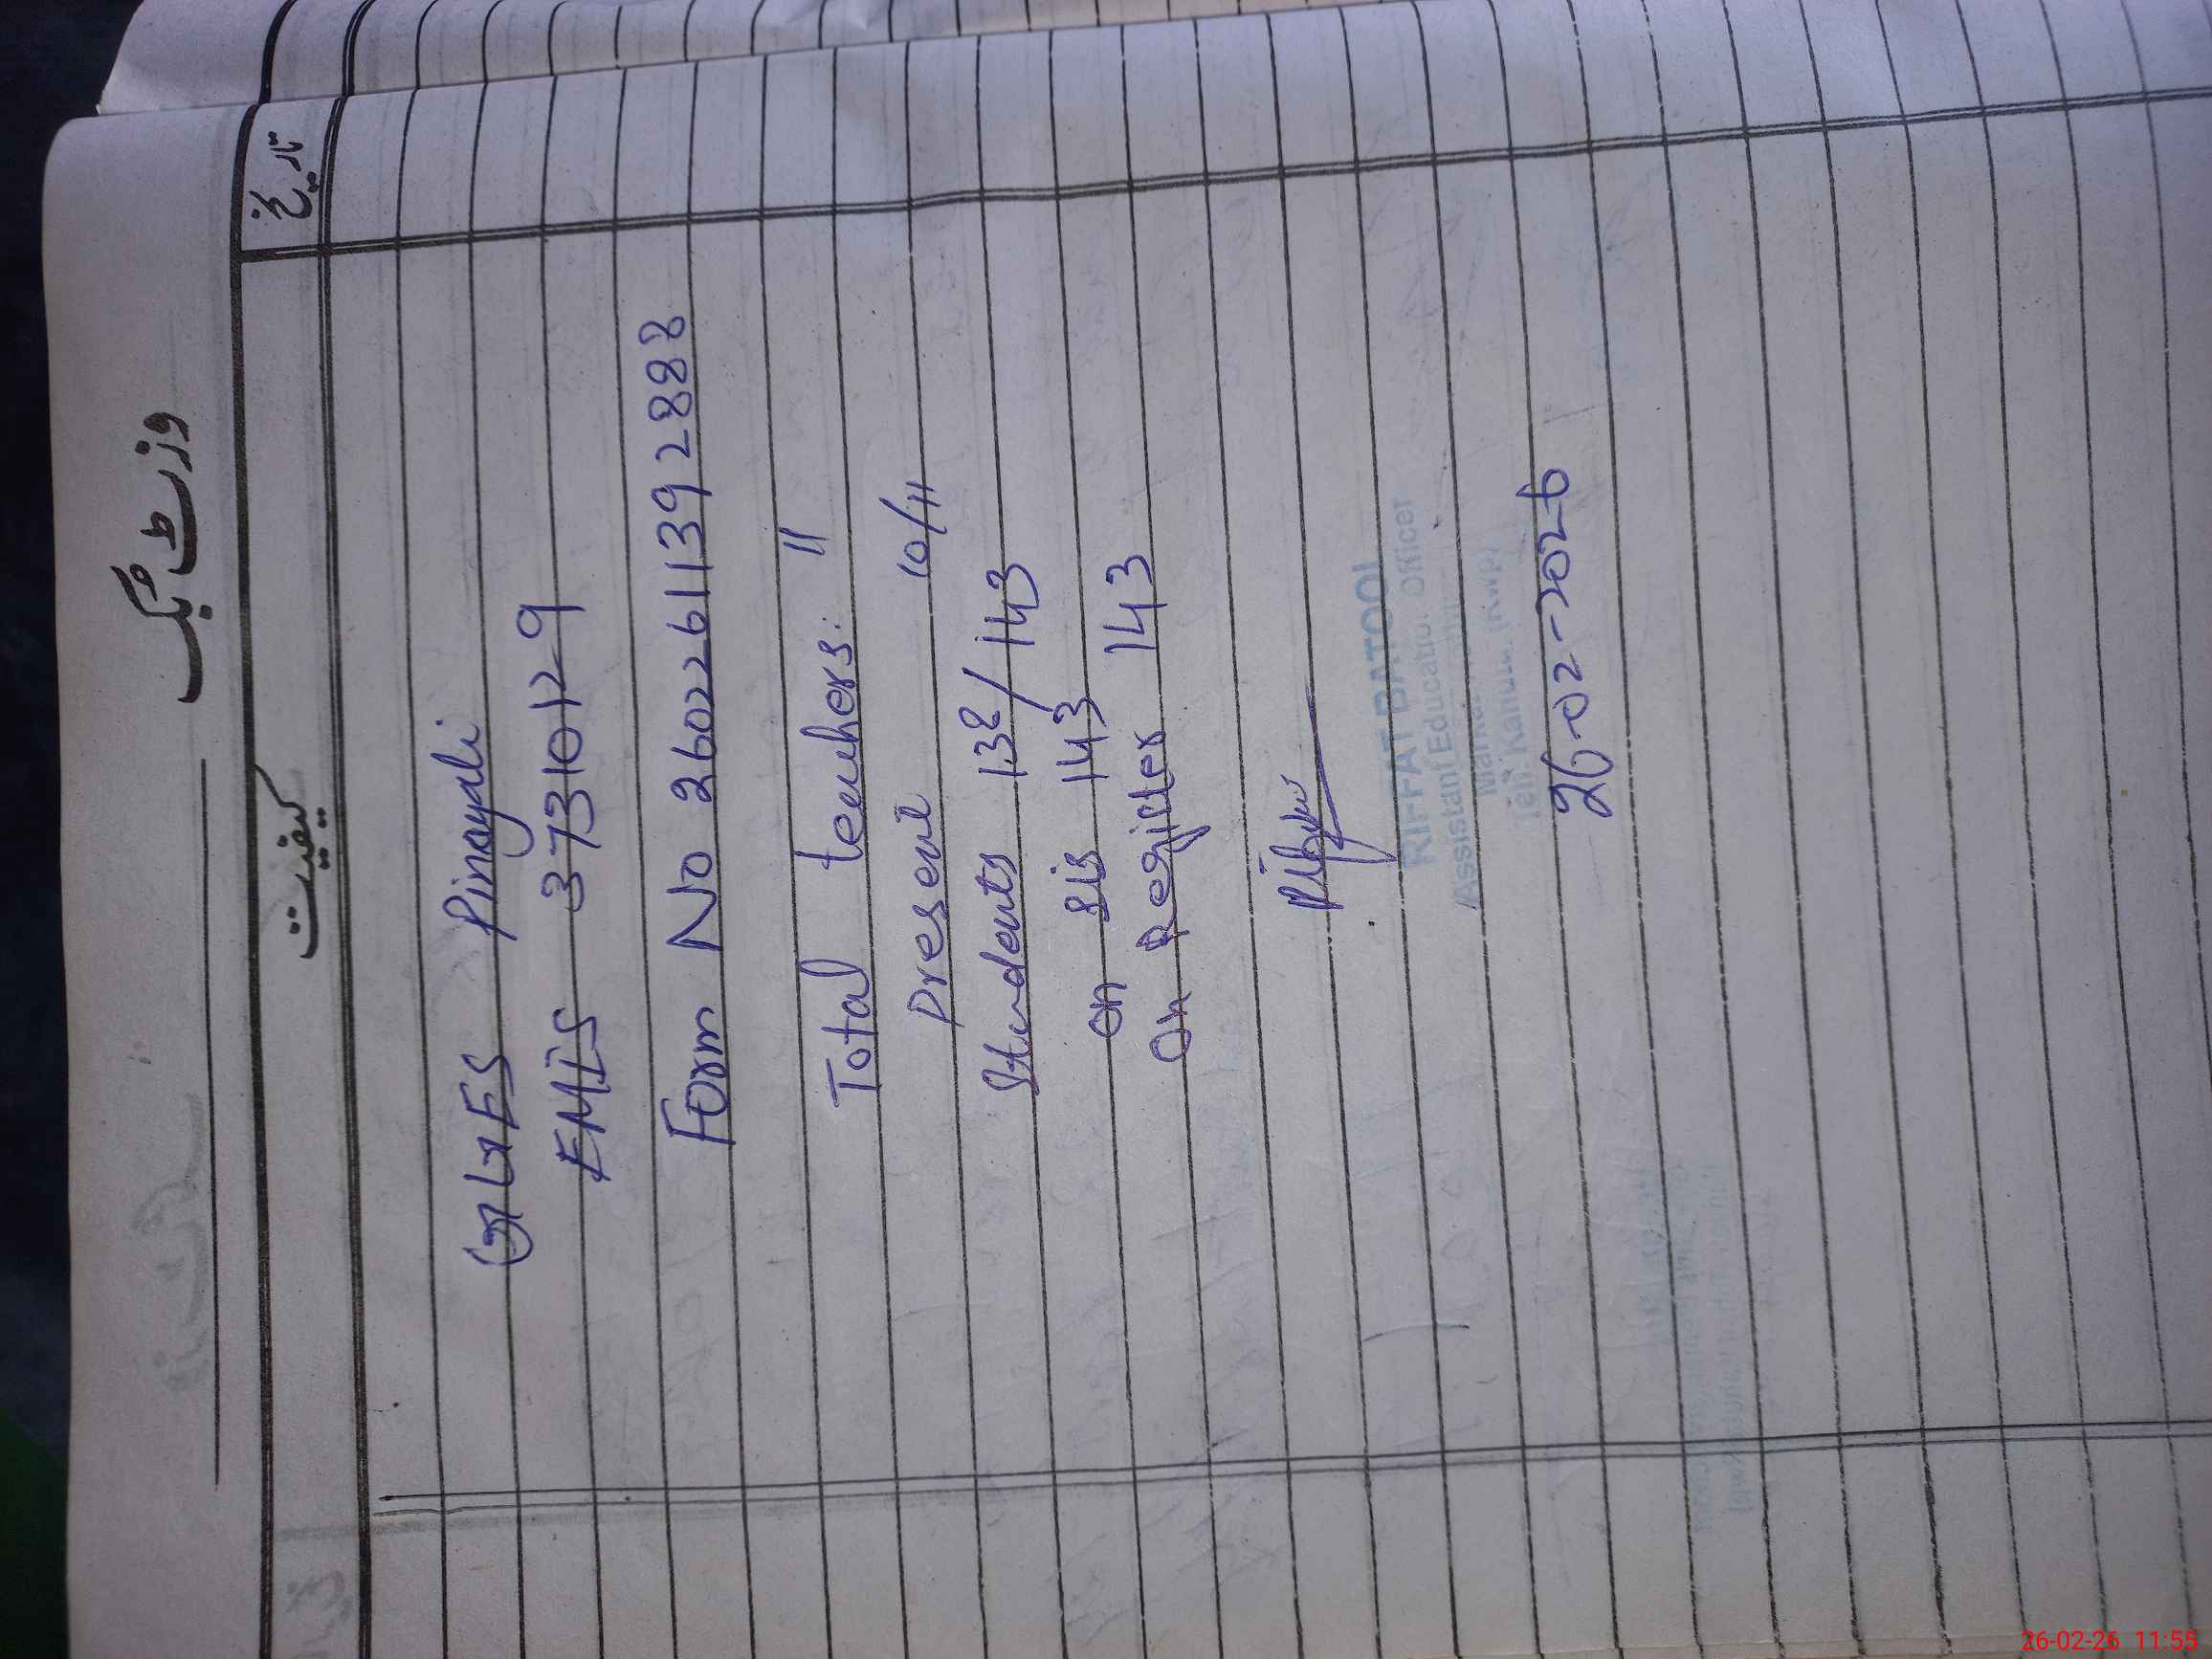 وزٹ بک
کیفیت
تاریخ
GGES Pinayali
EMIS 37310129
Form No 26022611392888
Total teachers: 11
Present 10/11
Students 138/143
on SIS 143
On Register 143
RIFFAT BATOOL
Assistant Education Officer
26-02-2026
26-02-26 11:55